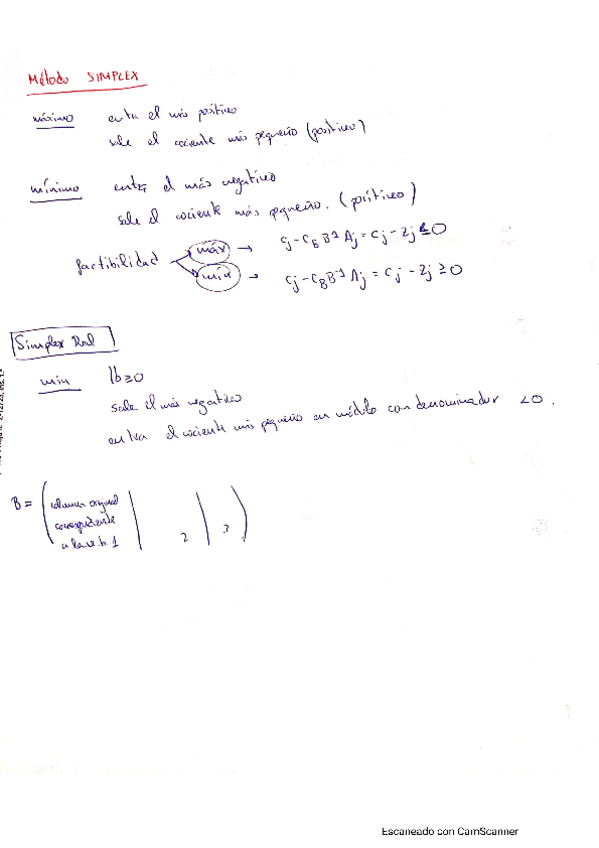 Método SIMPLEX
máximo entra el más positivo
sale el cociente más pequeño (positivo)
mínimo entra el más negativo
sale el cociente más pequeño. (positivo)
factibilidad máx → cj - cB B⁻¹ Aj = cj - zj ≤ 0
mín → cj - cB B⁻¹ Aj = cj - zj ≥ 0
Simplex Dual
min b ≥ 0
sale el más negativo
entra el cociente más pequeño en módulo con denominador <0.
B = columna original
correspondiente
a la v.b. 1 | 2 | 3
Escaneado con CamScanner